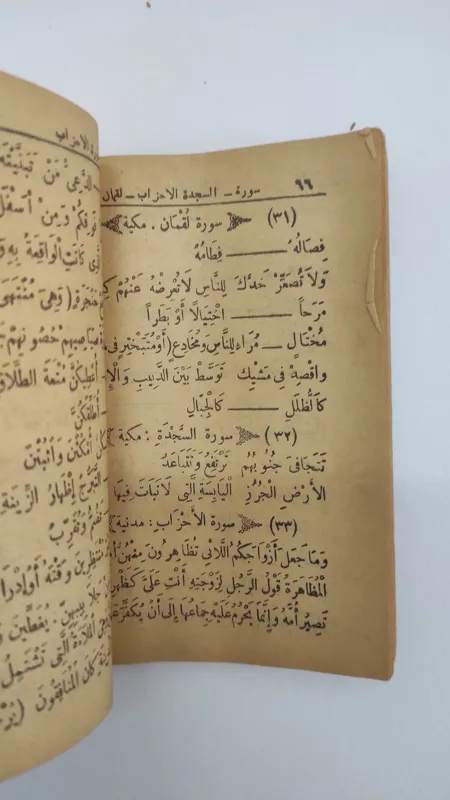 ٦٦ سورة - السجدة الاحزاب - لقمان
(٣١) سورة لُقْمَان . مكية
فِصَالُهُ ــــ فِطَامُهُ
وَلَا تُصَعِّرْ خَدَّكَ لِلنَّاسِ لَا تُعْرِضْهُ عَنْهُمْ
مَرَحاً ــــ اخْتِيَالاً أَوْ بَطَراً
مُخْتَالٍ ــــ مُرَاءٍ لِلنَّاسِ وَمُخَادِعٍ (أَوْ مُتَبَخْتِرٍ فِى
وَاقْصِدْ فِى مَشْيِكَ تَوَسَّطْ بَيْنَ الدَّبِيبِ وَالْإِ
كَالظُّلَلِ ــــ كَالْجِبَالِ
(٣٢) سورة السَّجْدَة : مكية
تَتَجَافَى جُنُوبُهُمْ تَرْتَفِعُ وَتَتَبَاعَدُ
الأَرْضِ الْجُرُزِ الْيَابِسَةِ الَّتِى لَا نَبَاتَ فِيهَا
(٣٣) سورة الأَحْزَاب : مدنية
وَمَا جَعَلَ أَزْوَاجَكُمُ اللَّائِى تُظَاهِرُونَ مِنْهُنَّ أُمَّ
الْمُظَاهَرَةُ قَوْلُ الرَّجُلِ لِزَوْجَتِهِ أَنْتِ عَلَىَّ كَظَهْرِ
تَصِيرُ أُمَّهُ وَإِنَّمَا يَحْرُمُ عَلَيْهِ جِمَاعُهَا إِلَى أَنْ يُكَفِّرَ عَنْ
ة الاحزاب
مَنْ تَبَنَّيْتُهُ
فَوْقِكُمْ وَمِنْ أَسْفَلَ
كَانَتِ الْوَاقِعَةُ بِهِ وَ
حَنْجَرَةٍ ( وَهِىَ مُنْتَهَى
صَيَاصِيهِمْ حُصُونِهِمْ
أُعْطِكُنَّ مُتْعَةَ الطَّلَاقِ
أُطَلِّقْكُنَّ
التَّبَرُّجُ إِظْهَارُ الزِّينَةِ
وَتُقَرِّبُ
وَقْتَهُ أَوْ
يُغَطِّينَ
الْمُلَاءَةُ الَّتِى تَشْتَمِلُ
كَانَ الْمُنَافِقُونَ